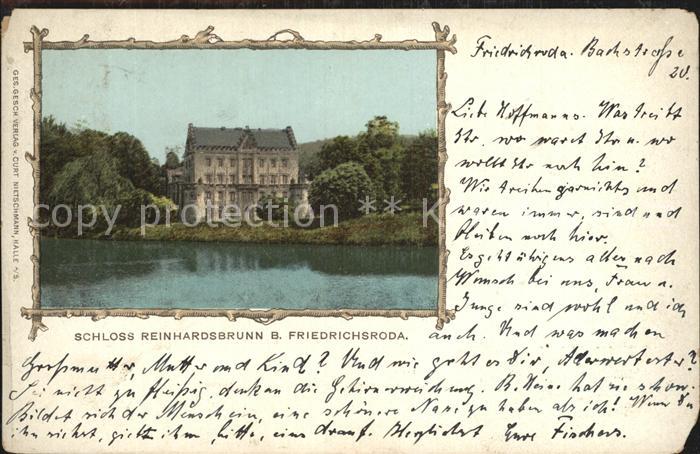 Friedrichroda. Bachstrasse
20.
Liebe Hoffmanns. Was treibt
Ihr, wo waret Ihr u. wo
wollt Ihr noch hin?
Wir treiben garnichts und
waren immer, sind und
bleiben noch hier.
Es geht übrigens alles nach
Wunsch bei uns, Frau u.
Junge sind wohl und ich
auch. Und was machen
Grossmutter, Mutter und Kind? Und wie geht es Dir, Allerwertester?
Sei nicht zu fleissig, denk an die Gehirnerweichung. B. Heine hat sie schon.
Bildet sich der Mensch ein, eine schönere Nase zu haben als ich! Wenn Du
ihn siehst, gieb ihm, bitte, eins drauf. Herzlichst Eure Fischers.
SCHLOSS REINHARDSBRUNN B. FRIEDRICHSRODA.
GES. GESCH. VERLAG V. CURT NIETSCHMANN, HALLE A/S.
copy protection ***